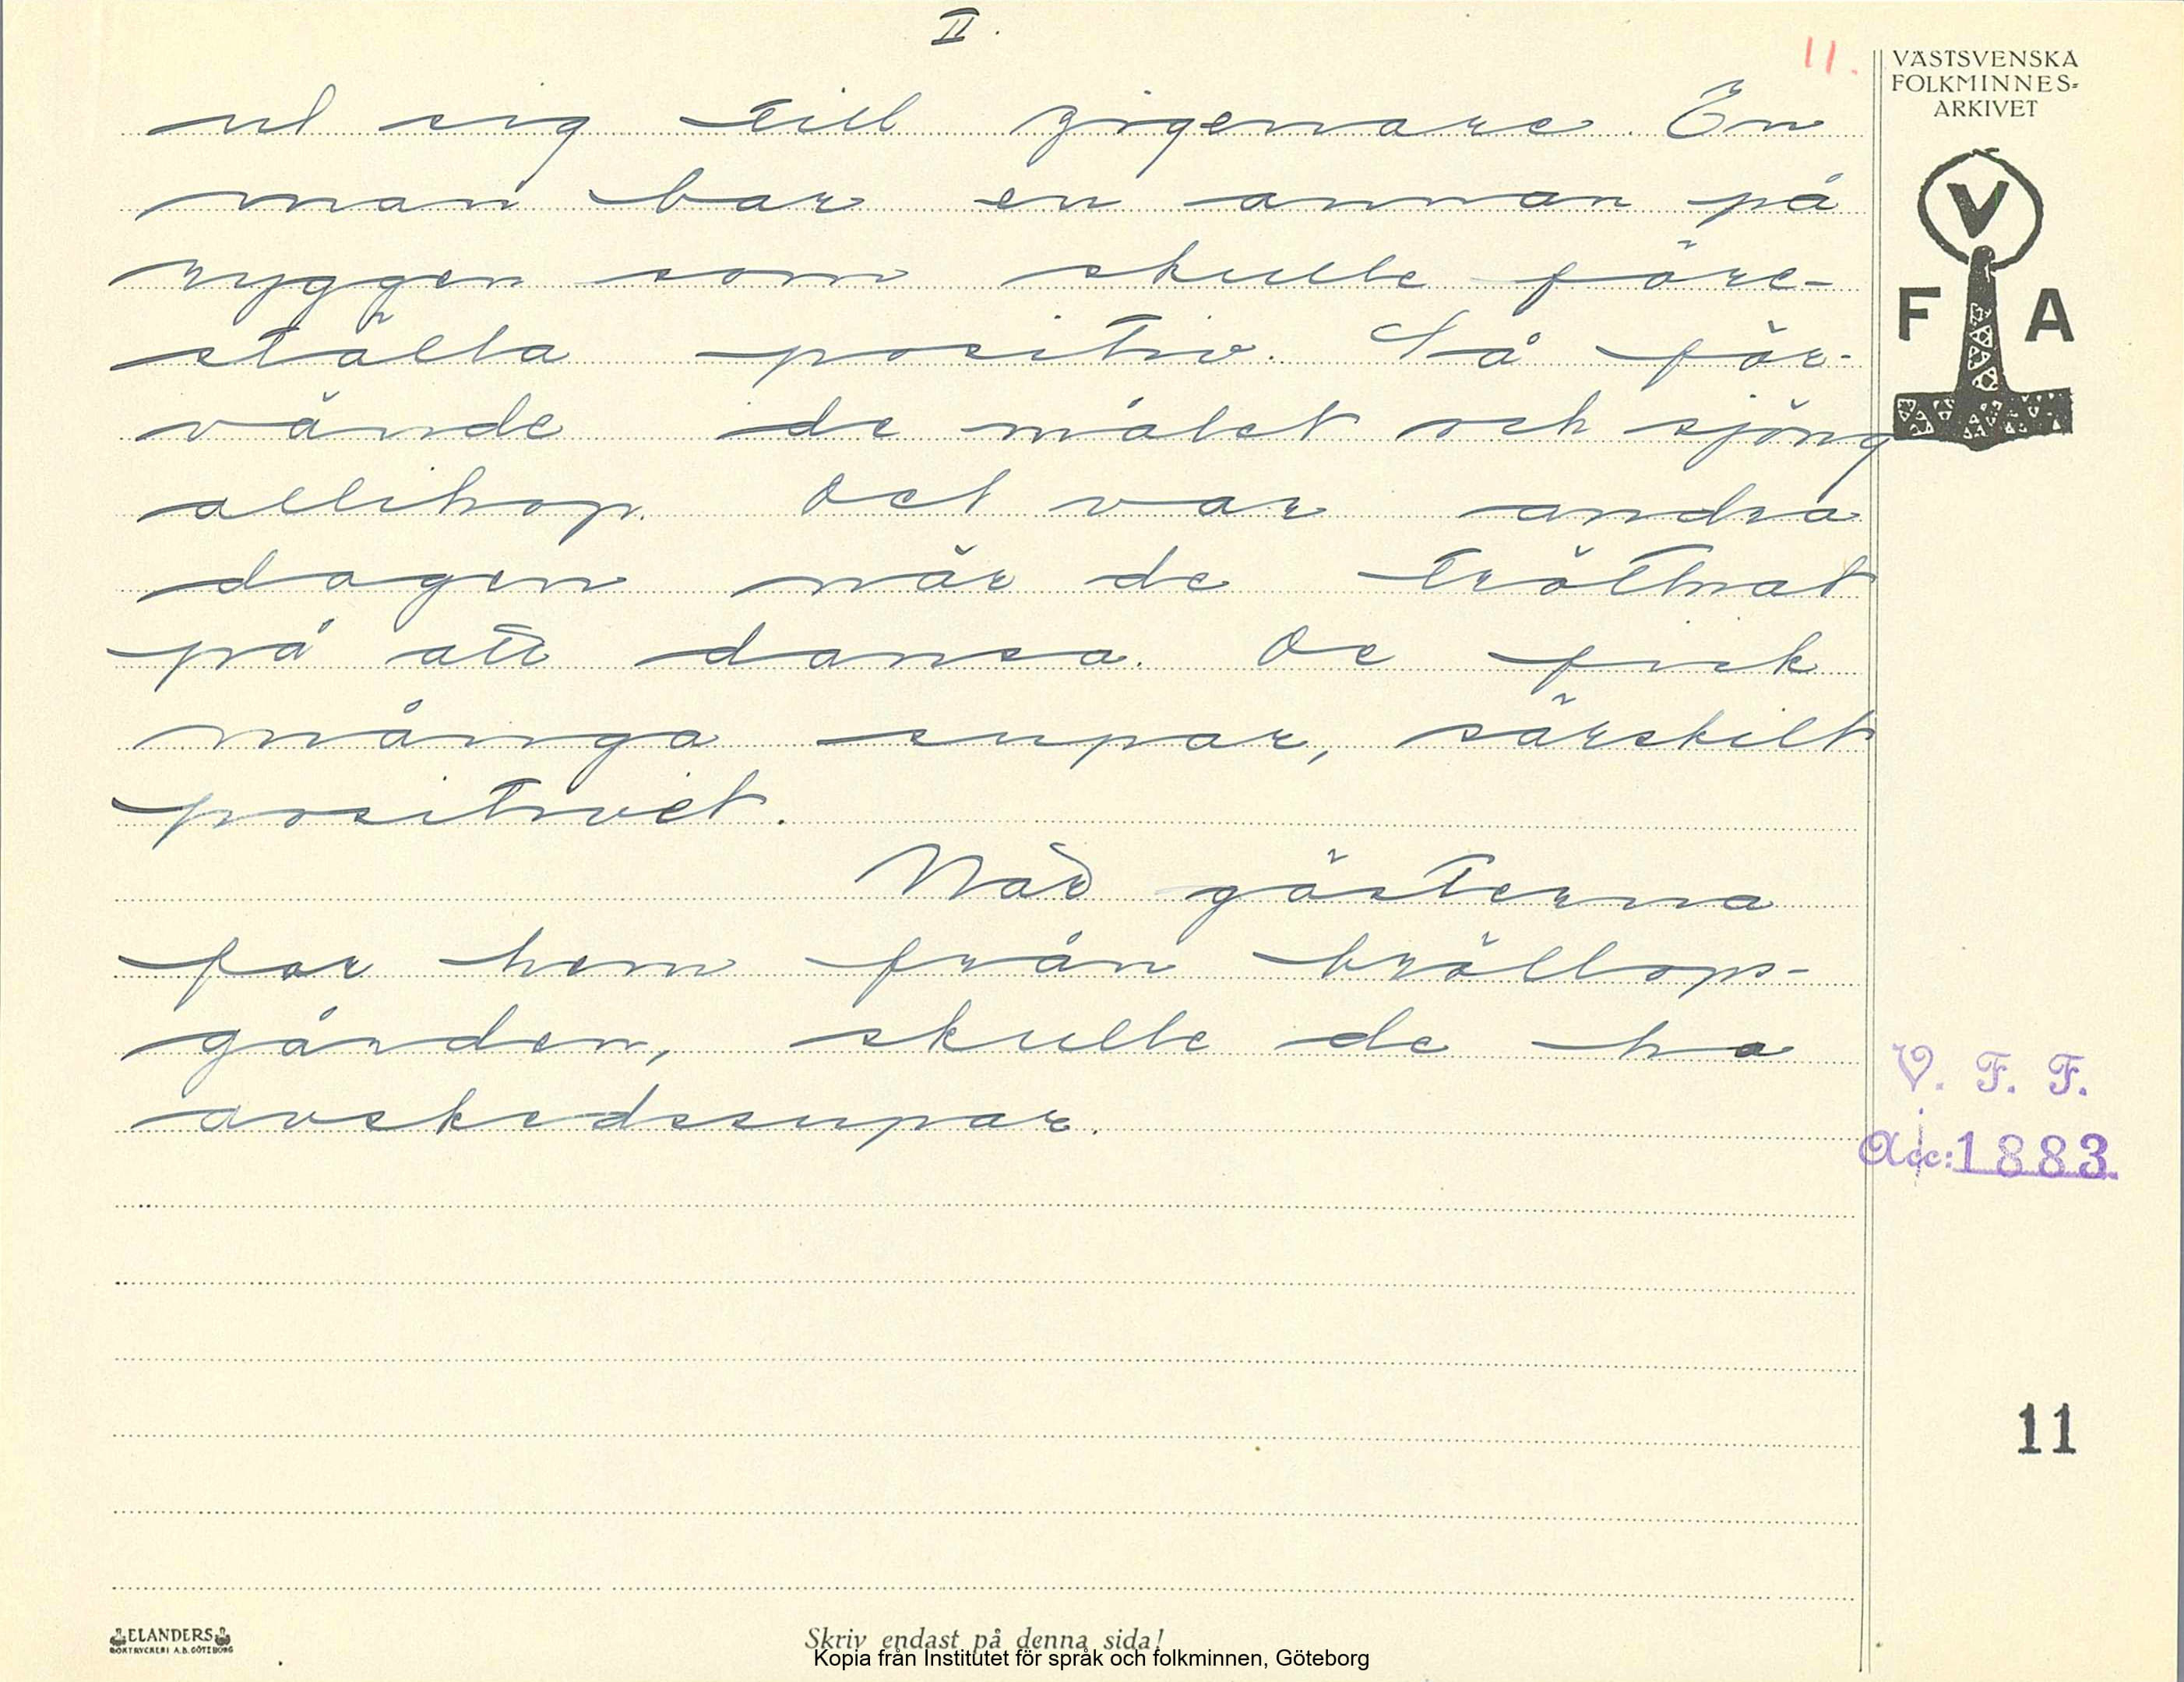 II.
11.
VÄSTSVENSKA
FOLKMINNES-
ARKIVET
V
F A
ut sig till zigenare. En
man bar en annan på
ryggen som skulle före-
ställa positiv. Så för-
vände de målet och sjöng
allihop. Det var andra
dagen när de tröttnat
på att dansa. De fick
många supar, särskilt
positivet.
När gästerna
for hem från bröllops-
gården, skulle de ha
avskedssupar.
V. F. F.
Acc: 1883
11
ELANDERS
BOKTRYCKERI A.B. GÖTEBORG
Skriv endast på denna sida!
Kopia från Institutet för språk och folkminnen, Göteborg